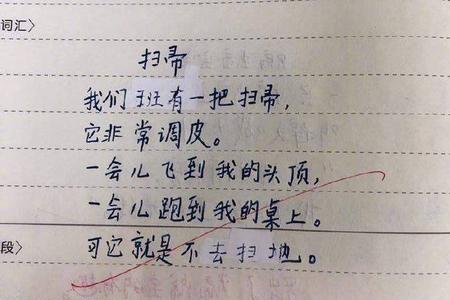 词汇〉
扫帚
我们班有一把扫帚，
它非常调皮。
一会儿飞到我的头顶，
一会儿跑到我的桌上。
段〉
可它就是不去扫地。